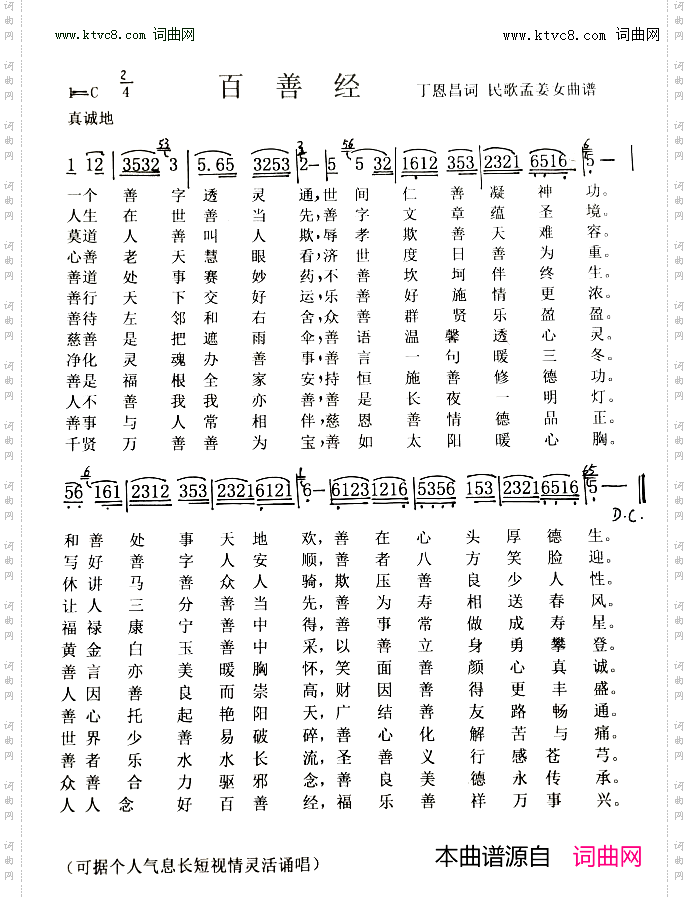 www.ktvc8.com 词曲网 www.ktvc8.com 词曲网
1=C 2/4 百善经 丁恩昌词 民歌孟姜女曲谱
真诚地
1 12 3532 3 5.65 3253 2- 5 5 32 1612 353 2321 6516 5-
一个善字透灵通,世间仁善凝神功。
人生在世善当先,善字文章蕴圣境。
莫道人善叫人欺,辱孝欺善天难容。
心善老天慧眼看,济世度日善为重。
善道处事赛妙药,不善坎坷伴终生。
善行天下交好运,乐善好施情更浓。
善待左邻和右舍,众善群贤乐盈盈。
慈善是把遮雨伞,善语温馨透心灵。
净化灵魂办善事,善言一句暖三冬。
善是福根全家安,持恒施善修德功。
人不善我我亦善,善是长夜一明灯。
善事与人常相伴,慈恩善情德品正。
千贤万善善为宝,善如太阳暖心胸。
56 161 2312 353 2321 6121 6- 6123 1216 5356 153 2321 6516 5-
D.C.
和善处事天地欢,善在心头厚德生。
写好善字人安顺,善者八方笑脸迎。
休讲马善众人骑,欺压善良少人性。
让人三分善当先,善为寿相送春风。
福禄康宁善中得,善事常做成寿星。
黄金白玉善中采,以善立身勇攀登。
善言亦美暖胸怀,笑面善颜心真诚。
人因善良而崇高,财因善得更丰盛。
善心托起艳阳天,广结善友路畅通。
世界少善易破碎,善心化解苦与痛。
善者乐水水长流,圣善义行感苍芎。
众善合力驱邪念,善良美德永传承。
人人念好百善经,福乐善祥万事兴。
(可据个人气息长短视情灵活诵唱)
本曲谱源自 词曲网